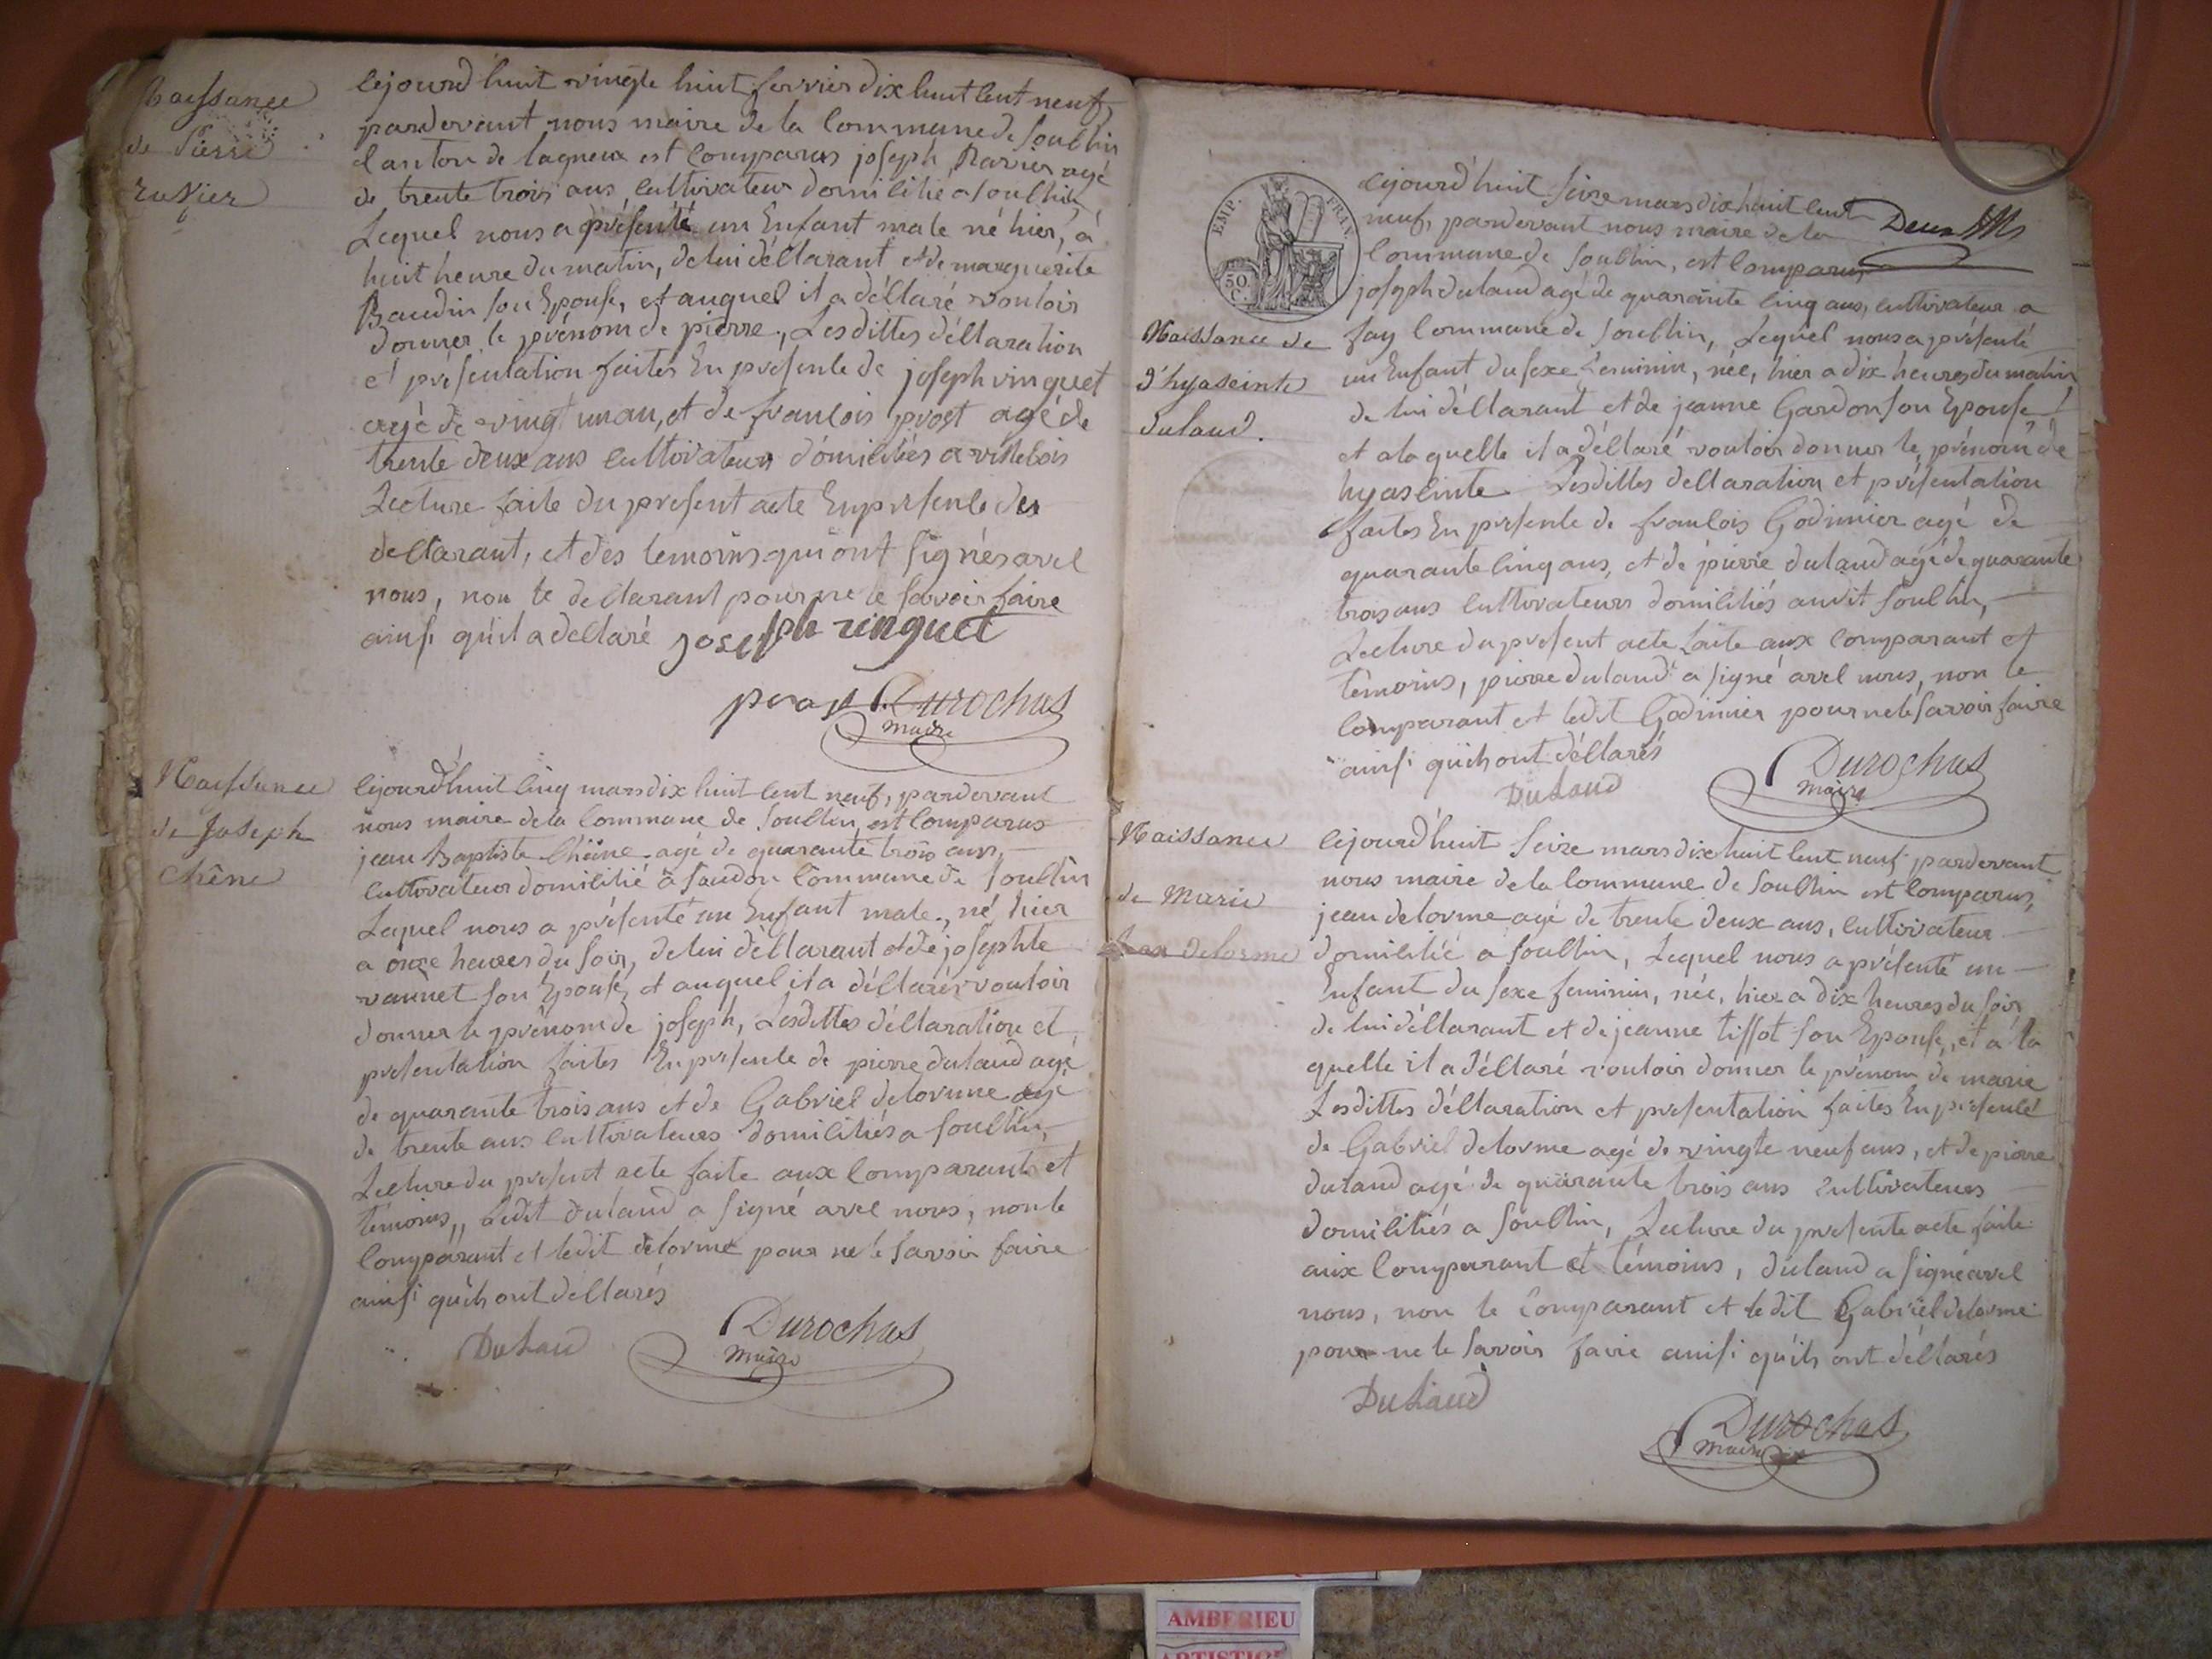 Naissance
de Pierre
ravier
cejourd'huit vingte huit fevrier dix huit cent neuf,
pardevant nous maire de la Commune de souclin
Canton de lagneux est comparus joseph Ravier agé
de trente trois ans cultivateur domicilié a souclin,
Lequel nous a présenté un Enfant male né hier, à
huit heure du matin, de lui déclarant et de marguerite
Baudin son Epouse, et auquel il a déclaré vouloir
donner le prénom de pierre, Lesdittes déclaration
et présentation faites En présence de joseph ringuet
agé de vingt un an, et de francois prost agé de
trente deux ans cultivateurs domiciliés a villebois
Lecture faite du present acte En présence des
declarant, et des temoins qui ont signés avec
nous, non le declarant pour ne le savoir faire
ainsi qu'il a declaré joseph ringuet
prost Durochas
maire
Naissance
de Joseph
Chêne
cejourd'huit cinq mars dix huit cent neuf, pardevant
nous maire de la Commune de souclin, est comparus
jean Baptiste Chêne agé de quarante trois ans,
cultivateur domicilié à soudon Commune de souclin
Lequel nous a présenté un Enfant male, né hier
a onze heures du soir, de lui déclarant et de josephte
vannet son Epouse, et auquel il a déclaré vouloir
donner le prénom de joseph, Lesdittes déclaration et
presentation faites En présence de pierre dulaud agé
de quarante trois ans et de Gabriel delorme agé
de trente ans cultivateurs domiciliés a souclin,
Lecture du présent acte faite aux comparants et
témoins, ledit dulaud a signé avec nous, non le
comparant et ledit delorme pour ne le savoir faire
ainsi qu'ils ont declarés
DuLaud
Durochas
maire
EMP. FRAN.
50
C.
Deux
Naissance de
d'hyaseinte
dulaud.
cejourd'huit seize mars dix huit cent
neuf, pardevant nous maire de la
Commune de souclin, est comparus
joseph dulaud agé de quarante cinq ans, cultivateur a
fay Commune de souclin, Lequel nous a présenté
un Enfant du sexe feminin, née, hier a dix heures du matin
de lui déclarant et de jeanne Gardon son Epouse
et a laquelle il a déclaré vouloir donner le prénom de
hyascinte Lesdittes declaration et présentation
faites En présence de francois Godinier agé de
quarante cinq ans, et de pierre dulaud agé de quarante
trois ans cultivateurs domiciliés audit souclin,
Lecture du présent acte faite aux comparant et
témoins, pierre dulaud a signé avec nous, non le
comparant et ledit Godinier pour ne le savoir faire
ainsi qu'ils ont déclarés
DuLaud
Durochas
Maire
Naissance
de Marie
delorme
cejourd'huit seize mars dix huit cent neuf pardevant
nous maire de la Commune de souclin est comparus,
jean delorme agé de trente deux ans, cultivateur
domicilié a souclin, Lequel nous a présenté un
Enfant du sexe feminin, née, hier a dix heures du soir
de lui déclarant et de jeanne tissot son Epouse, et a la
quelle il a déclaré vouloir donner le prénom de marie
Lesdittes déclaration et présentation faites En présence
de Gabriel delorme agé de vingte neuf ans, et de pierre
dulaud agé de quarante trois ans cultivateurs
domiciliés a souclin, Lecture du présente acte faite
aux comparant et témoins, dulaud a signé avec
nous, non le comparant et ledit Gabriel delorme
pour ne le savoir faire ainsi qu'ils ont déclarés
DuLaud
Durochas
maire
AMBERIEU
ARTISTIQUE